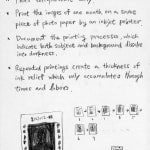 • Print the images of one month on a same
piece of photo paper by an inkjet printer
• Document the printing processes, which
indicate both subject and background dissolve
into darkness.
• Repeated printings create a thickness of
ink relief which only accumulates through
times and labors.